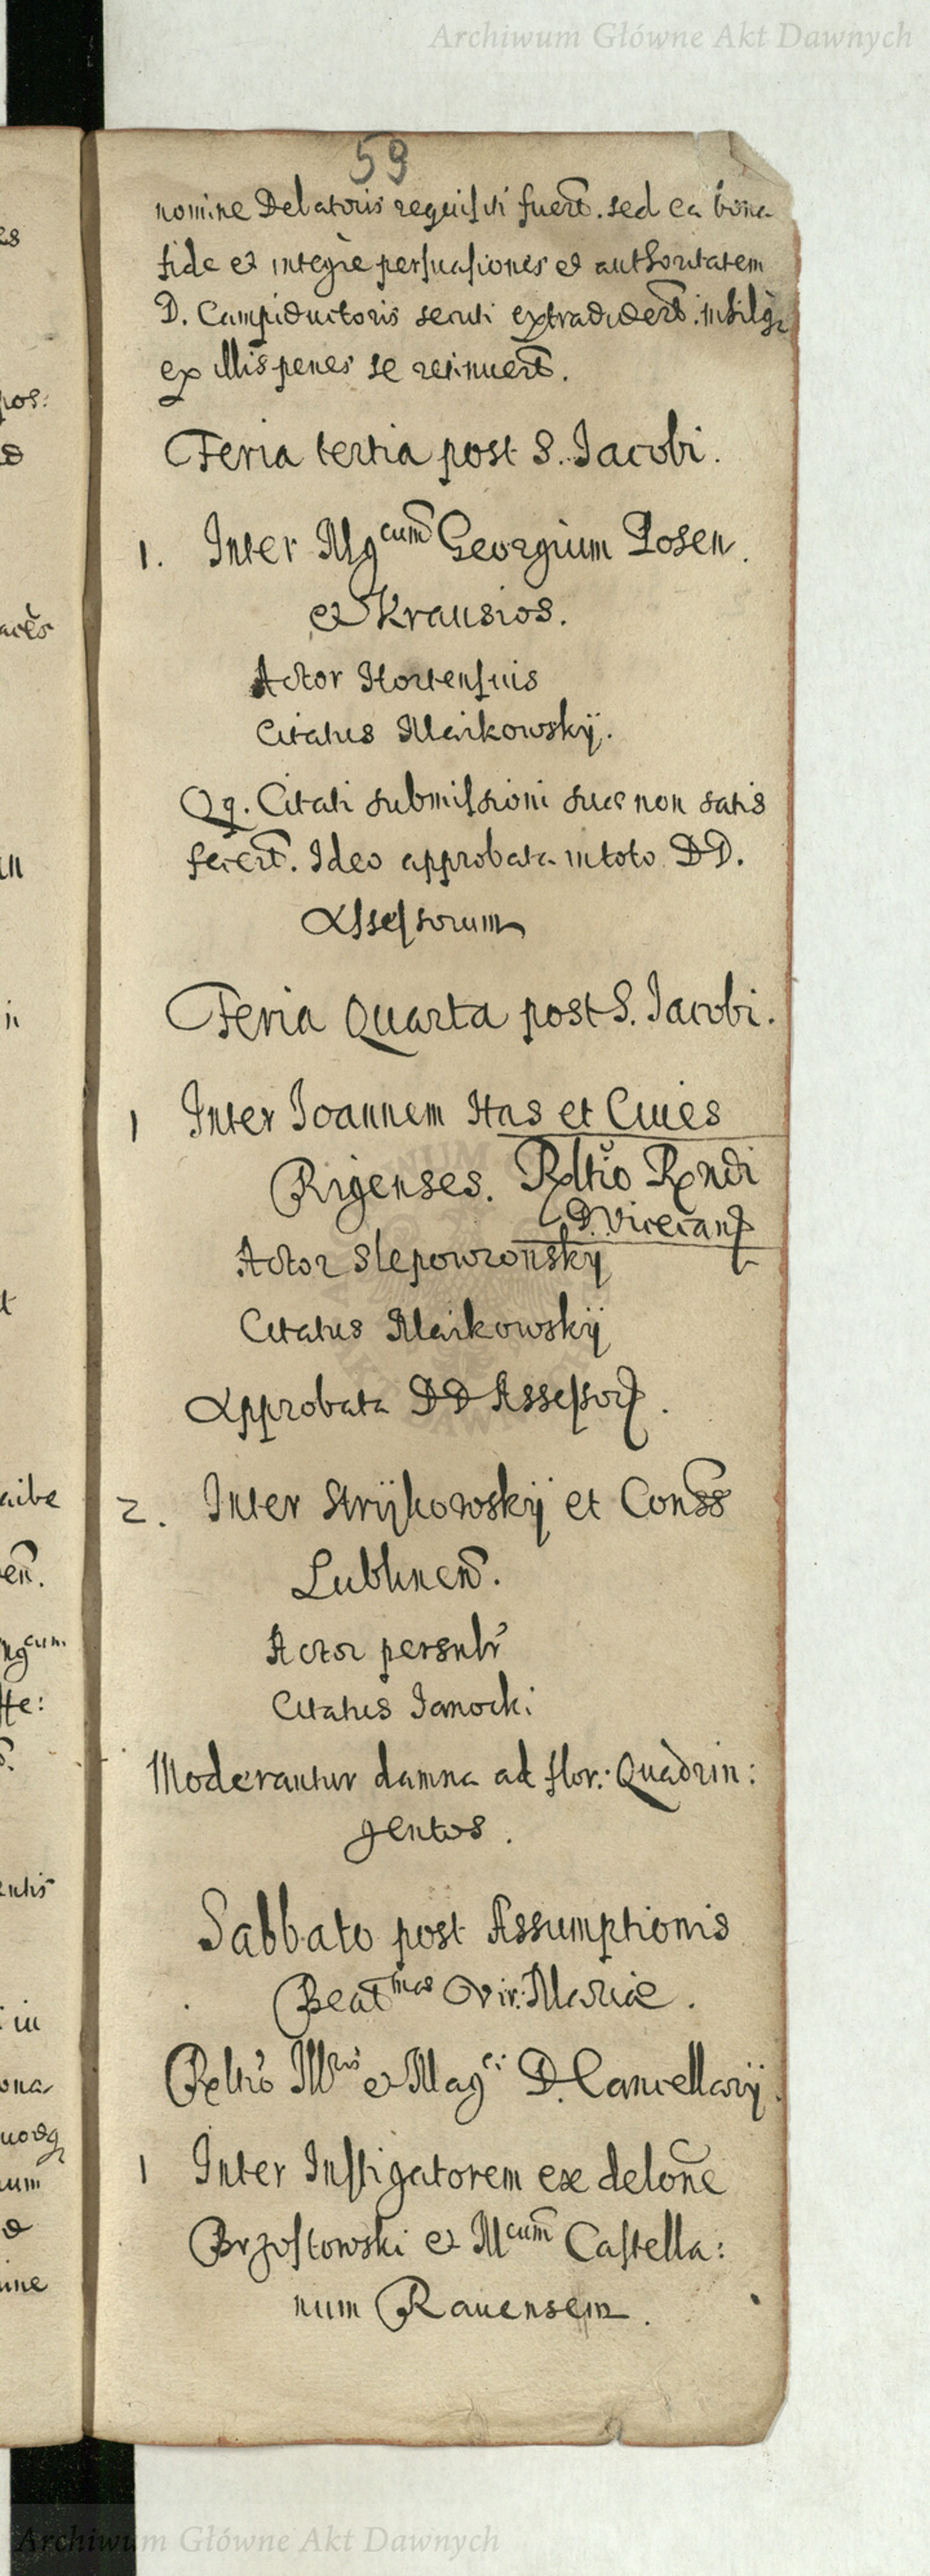 Archiwum Główne Akt Dawnych
59
nomine Delatoris requisiti fuert. sed ea bona
fide et integrè persuasiones et authoritatem
D. Campiductoris secuti extradidert. nihilq;
ex illis penes se retinuert.
Feria tertia post S. Jacobi.
1. Inter Mgcum Georgium Posen.
et Krausios.
Actor Hortensius
Citatus Maikowskÿ.
Qq. Citati submissioni suae non satis
fecert. Ideo approbata in toto DD.
Assessorum
Feria Quarta post S. Jacobi.
1 Inter Joannem Has et Ciues
Rigenses. Rltio Rndi
D. Vicecan
Actor Slepowronskÿ
Citatus Maikowskÿ
Approbata DD Assessor.
2. Inter Strÿkowskÿ et Conss
Lublinen.
Actor personlr
Citatus Janocki
Moderantur damna ad flor. Quàdrin:
gentos.
Sabbato post Assumptionis
Beatmae Vir: Mariae.
Reltio Illris et Magci D. Cancellarÿ.
1 Inter Instigatorem ex delone
Brzostowski et Mcum Castella:
num Rauensem.
Archiwum Główne Akt Dawnych